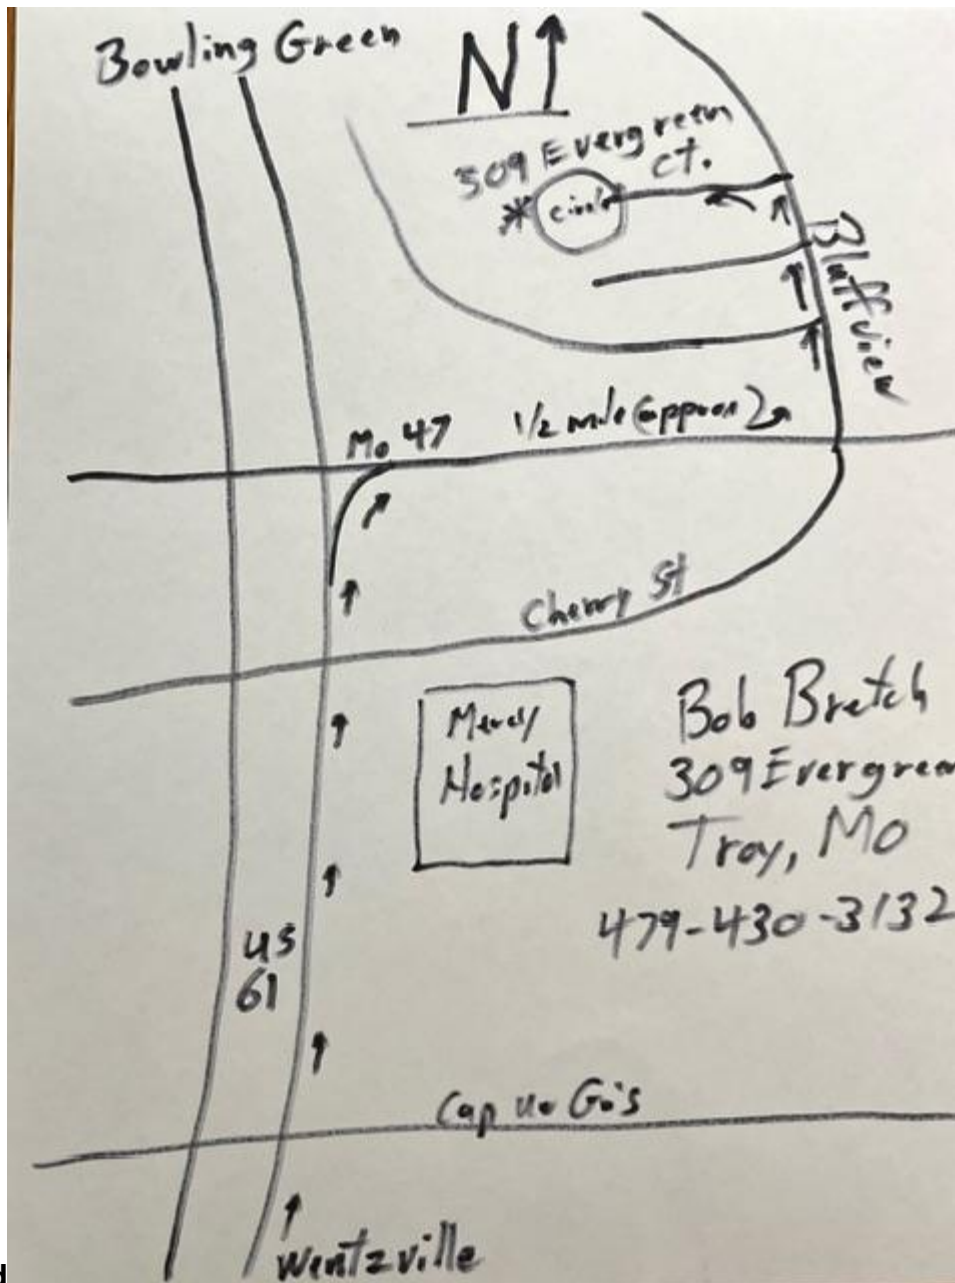 Bowling Green
N
309 Evergreen
ct.
circle
Bluffview
Mo 47
1/2 mile (approx)
Cherry St
Mercy
Hospital
Bob Bretch
309 Evergreen
Troy, MO
479-430-3132
US
61
Cap
Wentzville